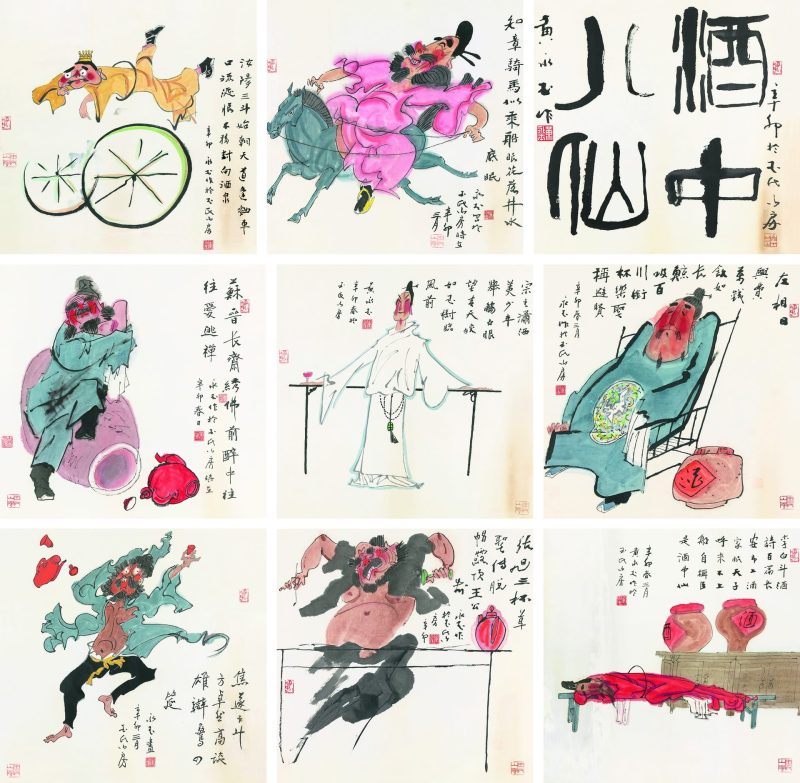 汝陽三斗始朝天道逢麯車
口流涎恨不移封向酒泉
辛卯永玉作於玉氏山房
知章騎馬似乘船眼花落井水
底眠
玉氏山房時在
辛卯
酒中
八仙
辛卯於玉氏山房
黄永玉作
蘇晉長齋繡佛前醉中往
往愛逃禪
永玉作於玉氏山房時在
辛卯春日
宗之瀟洒
美少年
舉觴白眼
望青天皎
如玉樹臨
風前
黄永玉
辛卯春於
玉氏山房
左相日
興費
萬錢
飲如
長
鯨
吸百
川銜
杯樂聖
稱避賢
辛卯春三月
永玉作於玉氏山房
酒
焦遂五斗
方卓然高談
雄辯驚四
筵
永玉畫
辛卯二月
玉氏山房
張旭三杯草
聖傳脱
帽露頂王公
前
永玉作
於玉氏山
房
辛卯
李白斗酒
詩百篇長
安市上酒
家眠天子
呼來不上
船自稱臣
是酒中仙
辛卯春三月
黄永玉作於
玉氏山房
酒